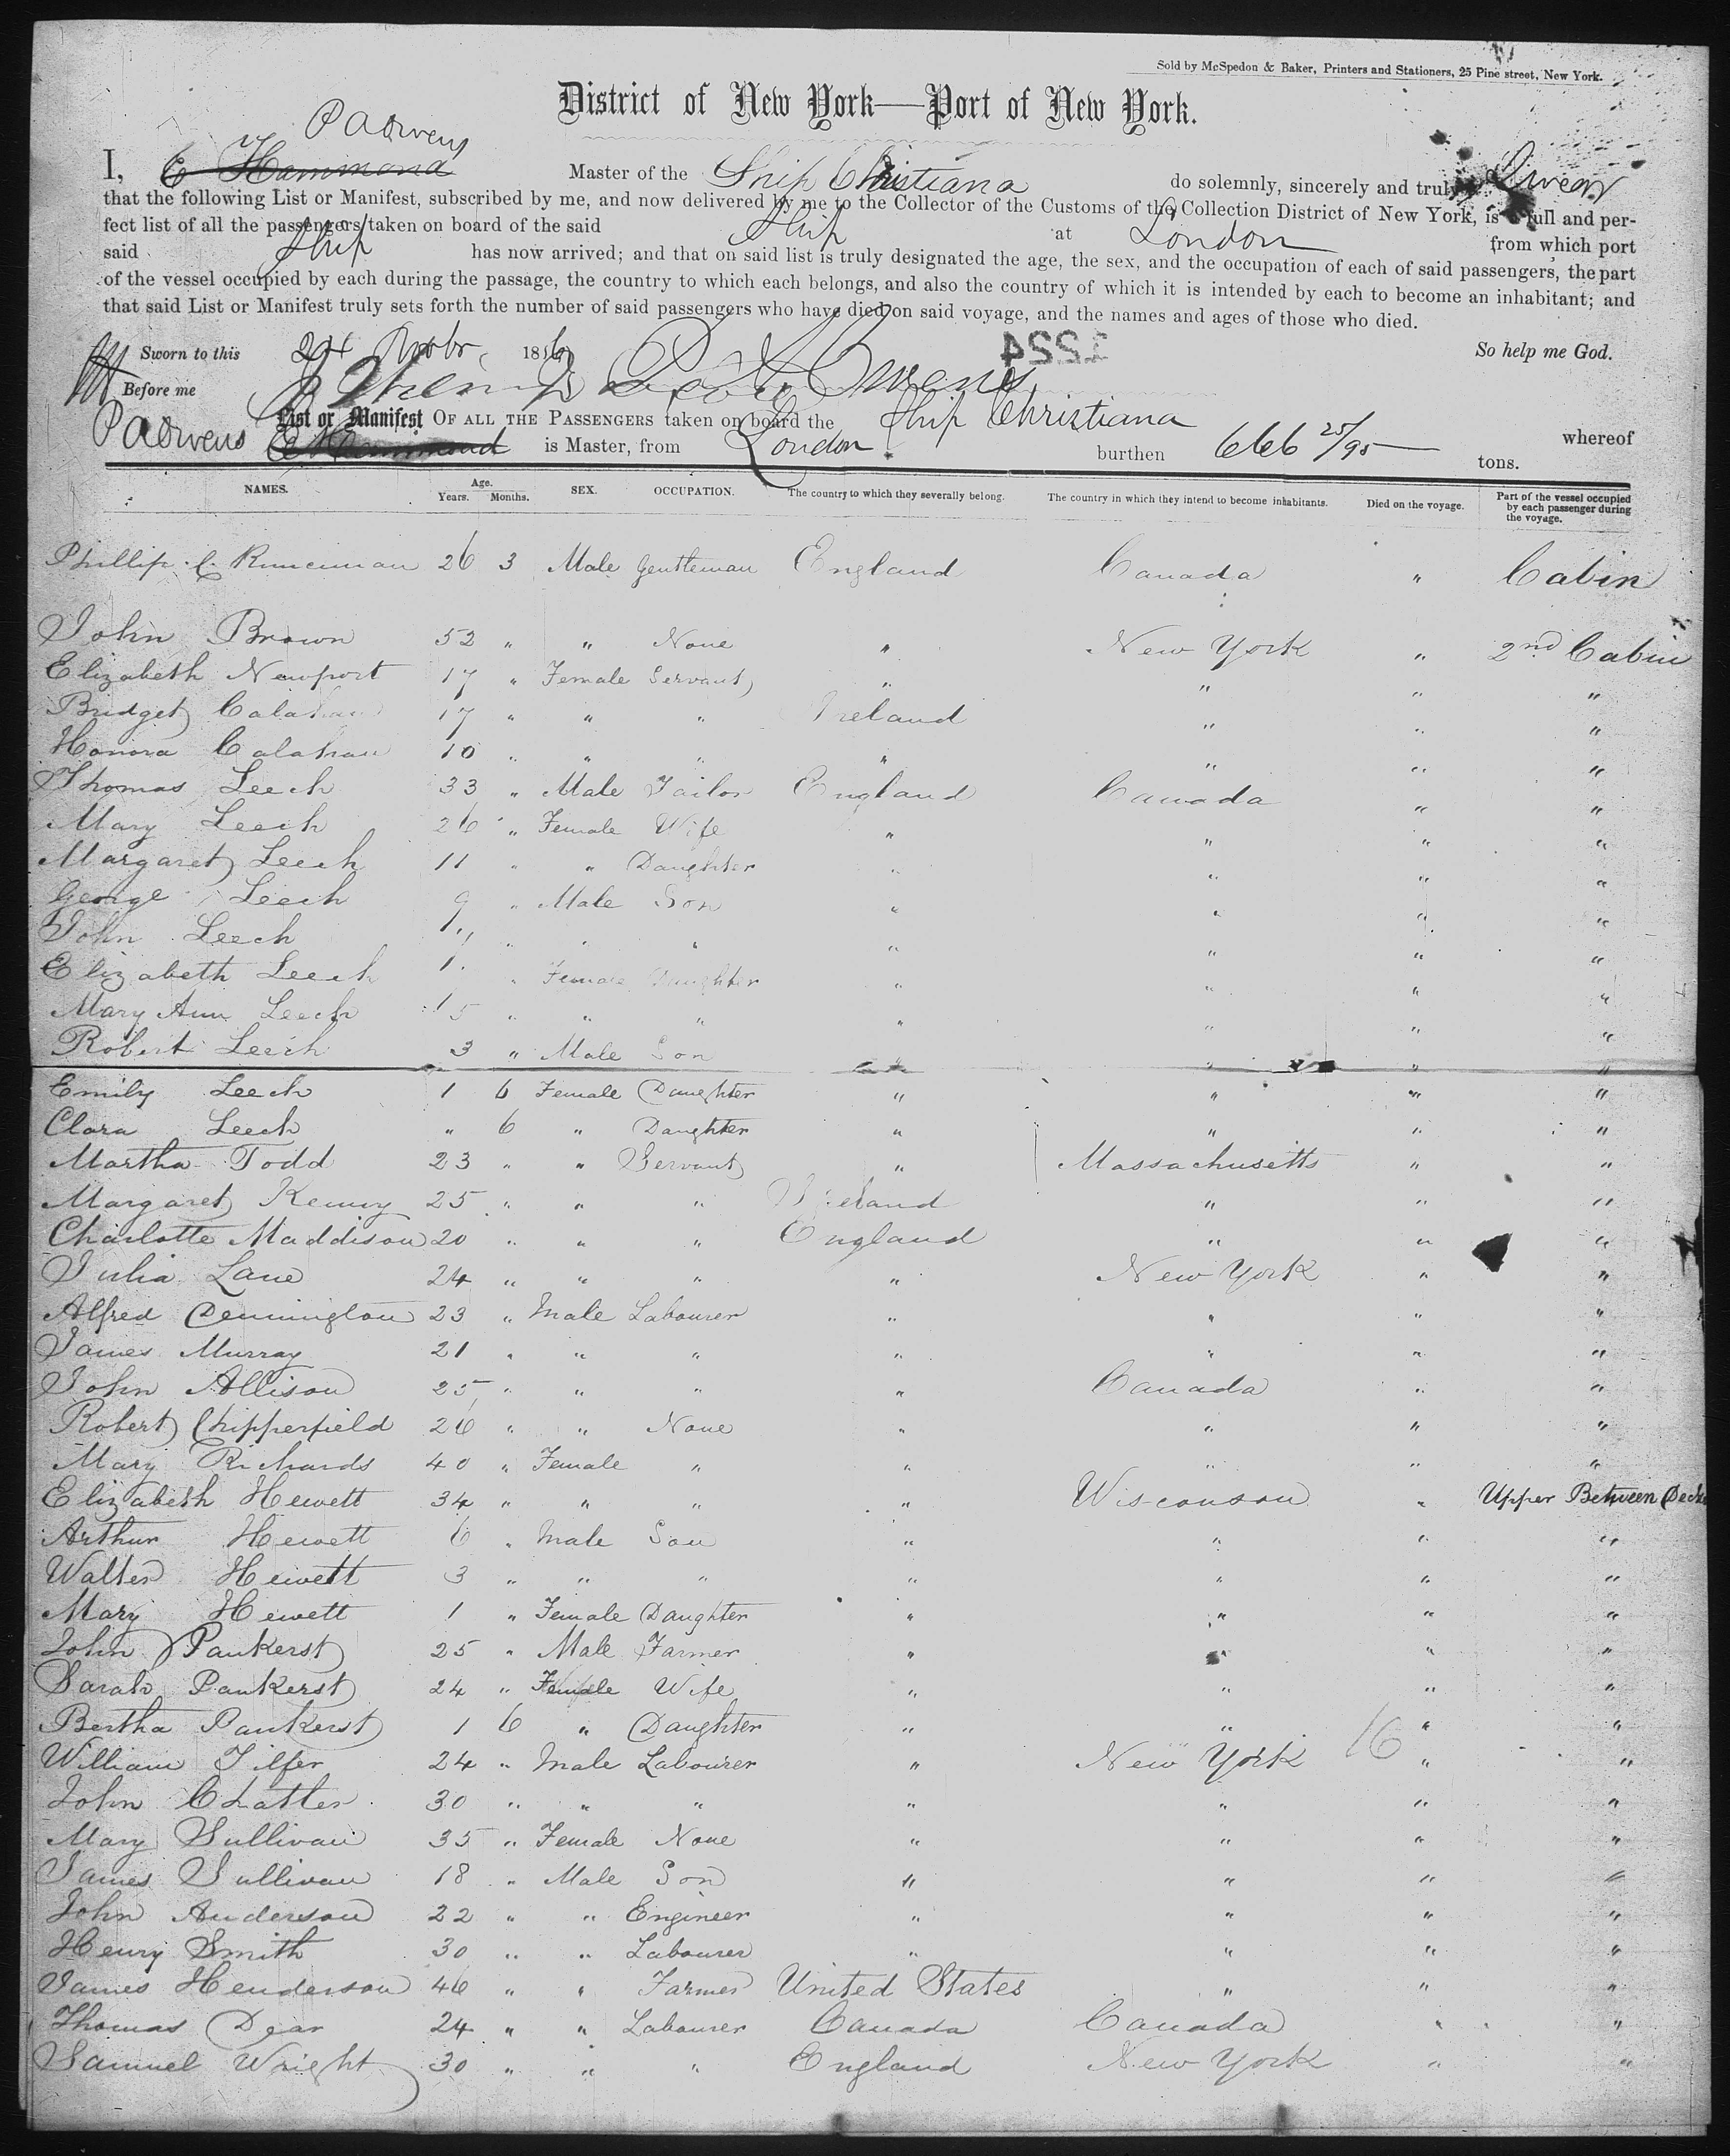 Sold by McSpedon & Baker, Printers and Stationers, 25 Pine street, New York.
District of New York—Port of New York.
P A Owens
I, E Hammond Master of the Ship Christiana do solemnly, sincerely and truly Swear
that the following List or Manifest, subscribed by me, and now delivered by me to the Collector of the Customs of the Collection District of New York, is a full and per-
fect list of all the passengers taken on board of the said Ship at London from which port
said Ship has now arrived; and that on said list is truly designated the age, the sex, and the occupation of each of said passengers, the part
of the vessel occupied by each during the passage, the country to which each belongs, and also the country of which it is intended by each to become an inhabitant; and
that said List or Manifest truly sets forth the number of said passengers who have died on said voyage, and the names and ages of those who died.
Sworn to this 24 Novbr 186 1554 So help me God.
Before me Owens
List or Manifest OF ALL THE PASSENGERS taken on board the Ship Christiana
P A Owens E Hammond is Master, from London burthen 666 25/95 tons. whereof
NAMES. Age. Years. Months. SEX. OCCUPATION. The country to which they severally belong. The country in which they intend to become inhabitants. Died on the voyage. Part of the vessel occupied by each passenger during the voyage.
Phillip C. Runciman 26 3 Male Gentleman England Canada " Cabin
John Brown 52 " " None " New York " 2nd Cabin
Elizabeth Newport 17 " Female Servant " " " "
Bridget Calahan 17 " " " Ireland " " "
Honora Calahan 10 " " " " " " "
Thomas Leech 33 " Male Tailor England Canada " "
Mary Leech 26 " Female Wife " " " "
Margaret Leech 11 " " Daughter " " " "
George Leech 9 " Male Son " " " "
John Leech " " " " " " "
Elizabeth Leech " Female Daughter " " " "
Mary Ann Leech 5 " " " " " " "
Robert Leech 3 " Male Son " " " "
Emily Leech 1 6 Female Daughter " " " "
Clara Leech " 6 " Daughter " " " "
Martha Todd 23 " " Servant " Massachusetts " "
Margaret Kenny 25 " " " Ireland " " "
Charlotte Maddison 20 " " " England " " "
Julia Lane 24 " " " " New York " "
Alfred Dennington 23 " Male Labourer " " " "
James Murray 21 " " " " " " "
John Allison 25 " " " " Canada " "
Robert Chipperfield 26 " " None " " " "
Mary Richards 40 " Female " " " " "
Elizabeth Hewett 34 " " " " Wisconson " Upper Between Decks
Arthur Hewett 6 " Male Son " " " "
Walter Hewett 3 " " " " " " "
Mary Hewett 1 " Female Daughter " " " "
John Pankerst 25 " Male Farmer " " " "
Sarah Pankerst 24 " Female Wife " " " "
Bertha Pankerst 1 6 " Daughter " " " "
William Tilfer 24 " Male Labourer " New York 16 " "
John Chatler 30 " " " " " " "
Mary Sullivan 35 " Female None " " " "
James Sullivan 18 " Male Son " " " "
John Anderson 22 " " Engineer " " " "
Henry Smith 30 " " Labourer " " " "
James Henderson 46 " " Farmer United States " " "
Thomas Dear 24 " " Labourer Canada Canada " "
Samuel Wright 30 " " " England New York " "